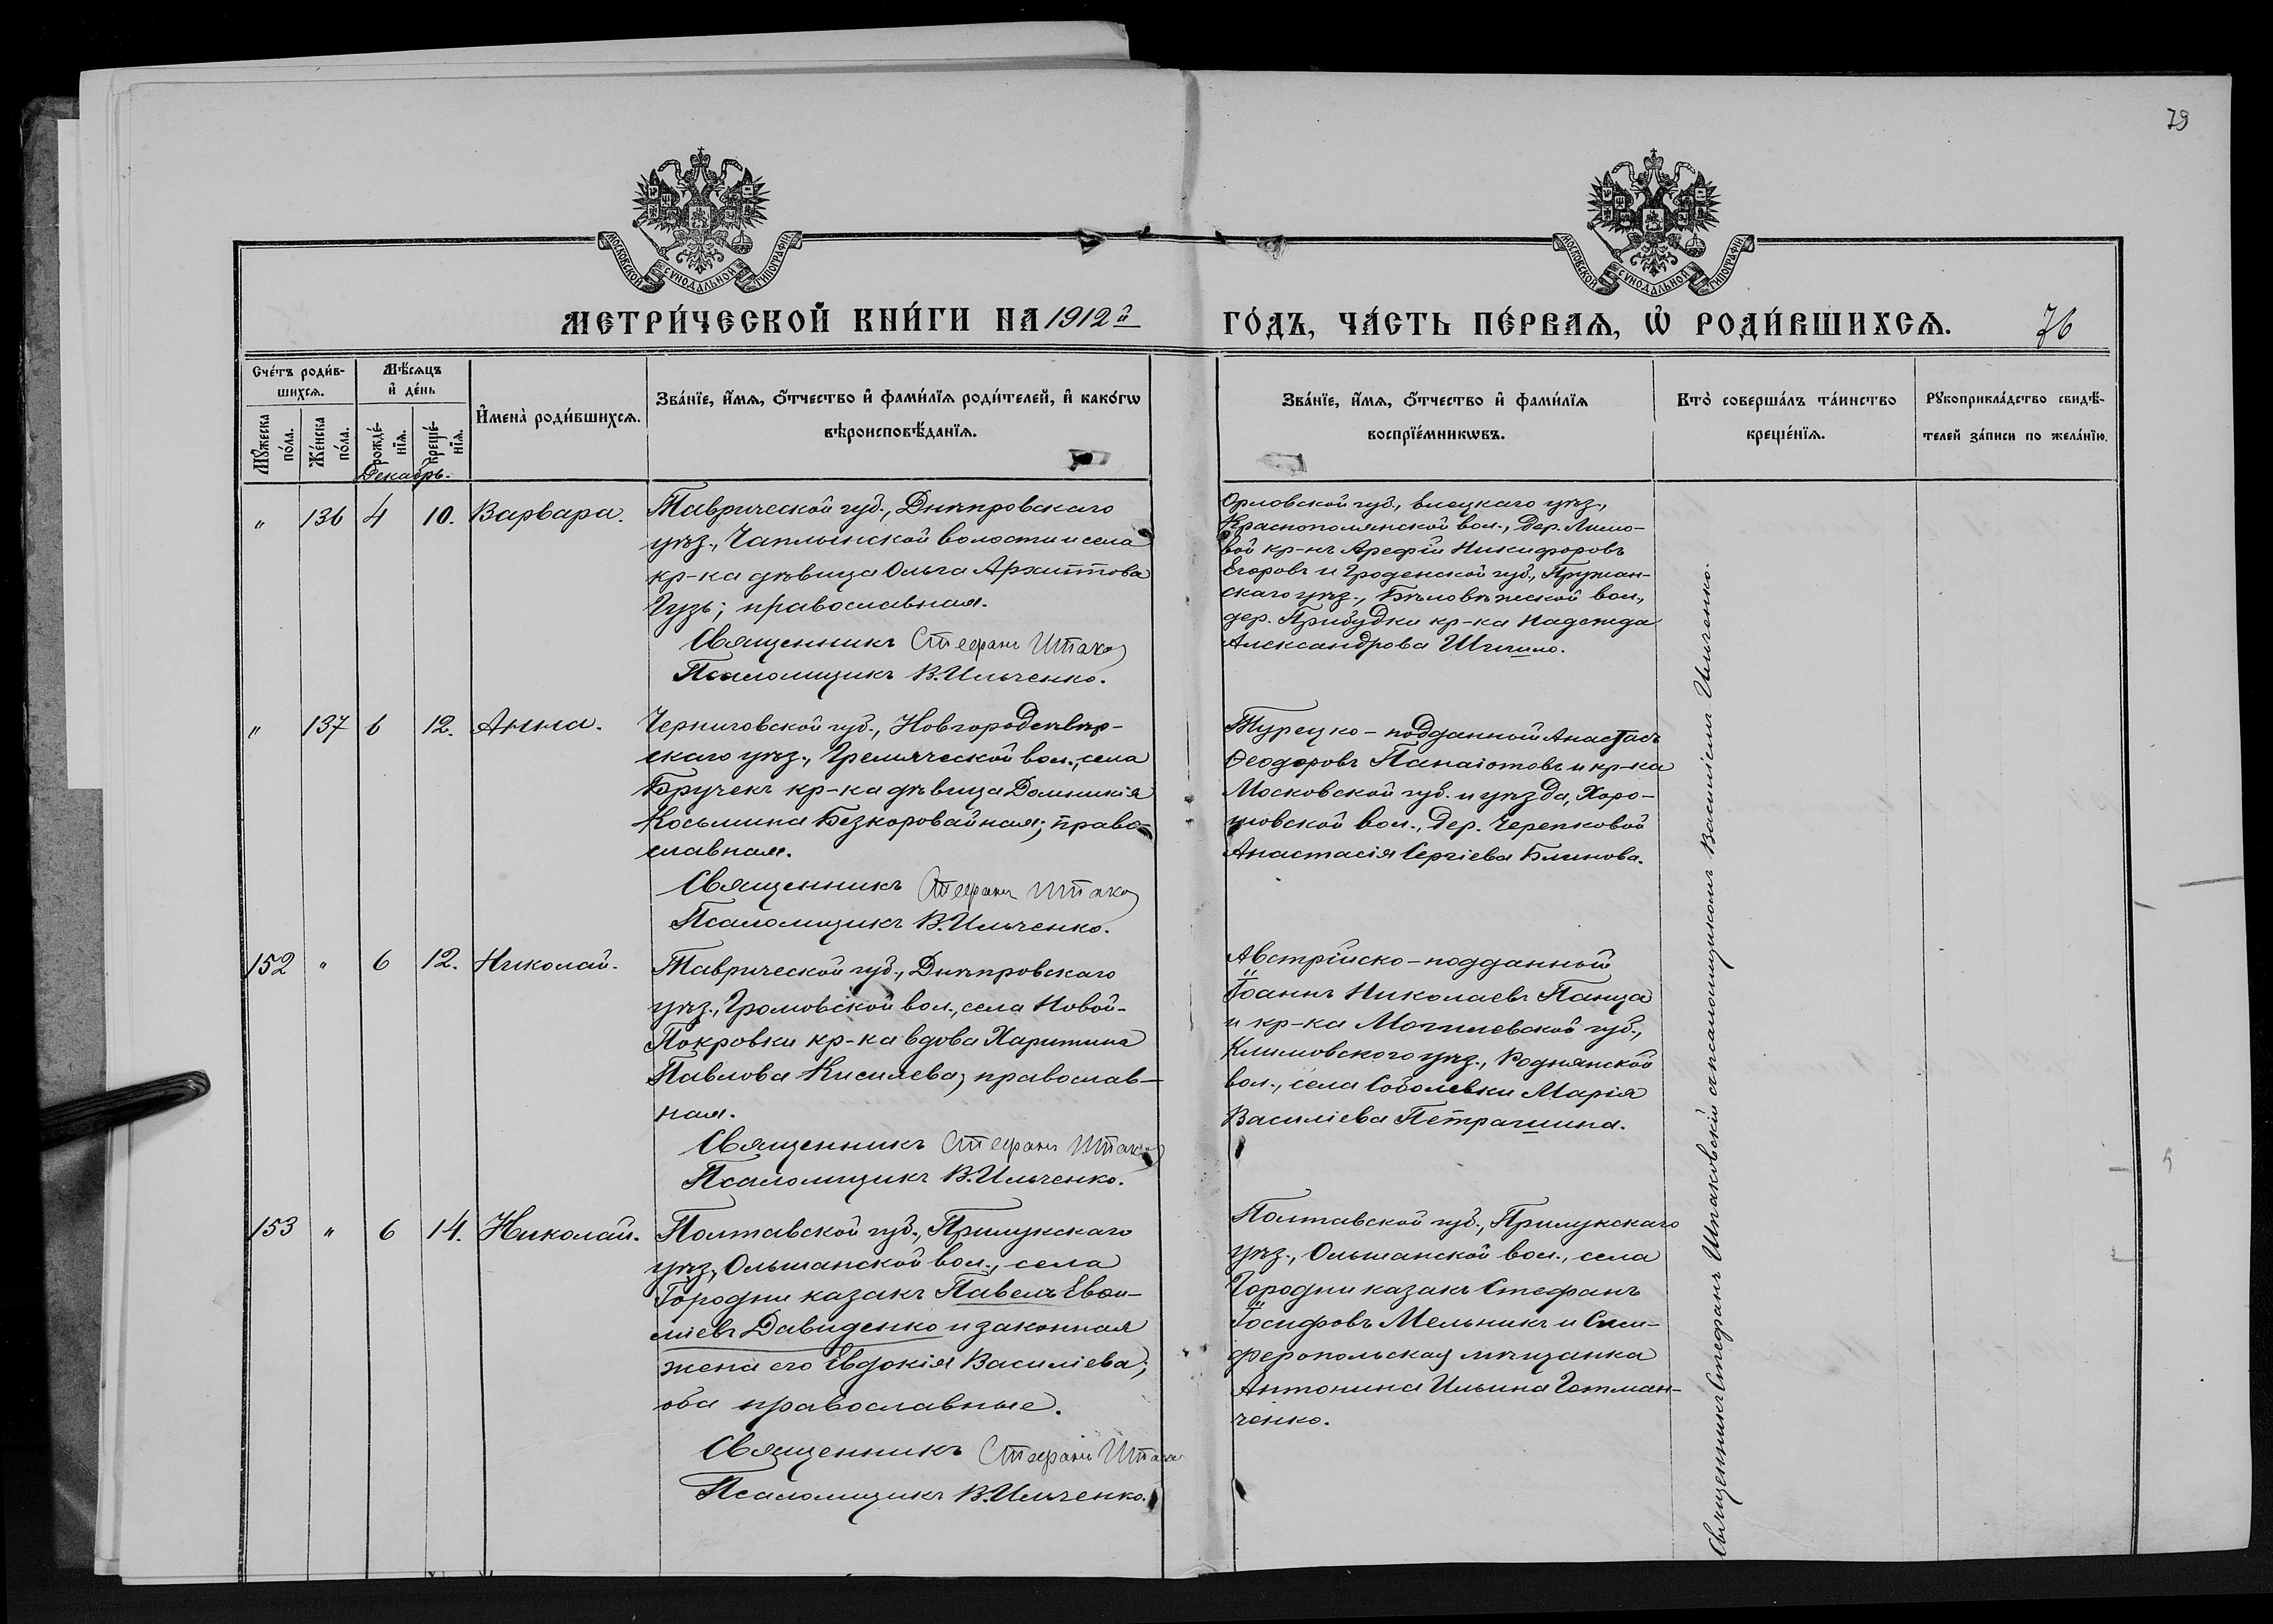 79
МОСКОВСКОЙ СУНОДАЛЬНОЙ ТИПОГРАФІИ
МОСКОВСКОЙ СУНОДАЛЬНОЙ ТИПОГРАФІИ
МЕТРИ́ЧЕСКОЙ КНИ́ГИ НА 1912й
ГО́ДЪ, ЧА́СТЬ ПЕ́РВАѦ, Ѡ҆ РОДИ́ВШИХСѦ.
76
Сче́тъ роди́в-
шихсѧ.
Мѣ́сѧцъ
и҆ де́нь
И҆мена̀ роди́вшихсѧ.
Зва́нїе, и҆́мѧ, ѻ҆́тчество и҆ фами́лїѧ роди́телей, и҆ како́гѡ
вѣроисповѣ́данїѧ.
Зва́нїе, и҆́мѧ, ѻ҆́тчество и҆ фами́лїѧ
воспрїе́мникѡвъ.
Кто̀ соверша́лъ та́инство
креще́нїѧ.
Рꙋкоприкла́дство свидѣ́-
телей за́писи по жела́нїю.
Мꙋ́жеска
по́ла.
Же́нска
по́ла.
рожде́-
нїѧ.
креще́-
нїѧ.
Декабрь.
„ 136 4 10. Варвара.
Таврической губ., Днѣпровскаго
уѣз., Чаплынской волости и села
кр-ка дѣвица Ольга Архиппова
Гузь; православная.
Священникъ Стефанъ
Псаломщикъ В. Ильченко.
Орловской губ., Елецкаго уѣз.,
Краснополянской вол., дер. Лимо-
вой кр-нъ Арефій Никифоровъ
Егоровъ и Гроденской губ., Пружан-
скаго уѣз., Бѣловѣжской вол.,
дер. Прибудки кр-ка Надежда
Александрова
„ 137 6 12. Анна.
Черниговской губ., Новгородсѣвер-
скаго уѣз., Гремяческой вол., села
Бручекъ кр-ка дѣвица Домникія
Косьмина Безкоровайная; право-
славная.
Священникъ Стефанъ
Псаломщикъ В. Ильченко.
Турецко-подданной Анастасъ
Ѳеодоровъ Панаіотовъ и кр-ка
Московской губ. и уѣзда, Хоро-
шовской вол., дер. Черепковой
Анастасія Сергіева Блинова.
152 „ 6 12. Николай.
Таврической губ., Днѣпровскаго
уѣз., Громовской вол., села Новой-
Покровки кр-ка вдова Харитина
Павлова Кисилева, православ-
ная.
Священникъ Стефанъ
Псаломщикъ В. Ильченко.
Австрійско-подданный
Іоаннъ Николаевъ Панца
и кр-ка Могилевской губ.,
Климовского уѣз., Роднянской
вол., села Соболевки Марія
Василіева Петрашина.
153 „ 6 14. Николай.
Полтавской губ., Прилукскаго
уѣз., Ольшанской вол., села
Городни казакъ Павелъ Евои-
міевъ Давиденко и законная
жена его Евдокія Василіева;
оба православные.
Священникъ Стефанъ
Псаломщикъ В. Ильченко.
Полтавской губ., Прилукскаго
уѣз., Ольшанской вол., села
Городни казакъ Стефанъ
Іосифовъ Мельникъ и Сим-
феропольская мѣщанка
Антонина Ильина Гетман-
ченко.
Священникъ Стефанъ Шпаковскій съ псаломщикомъ Василіемъ Ильченко.